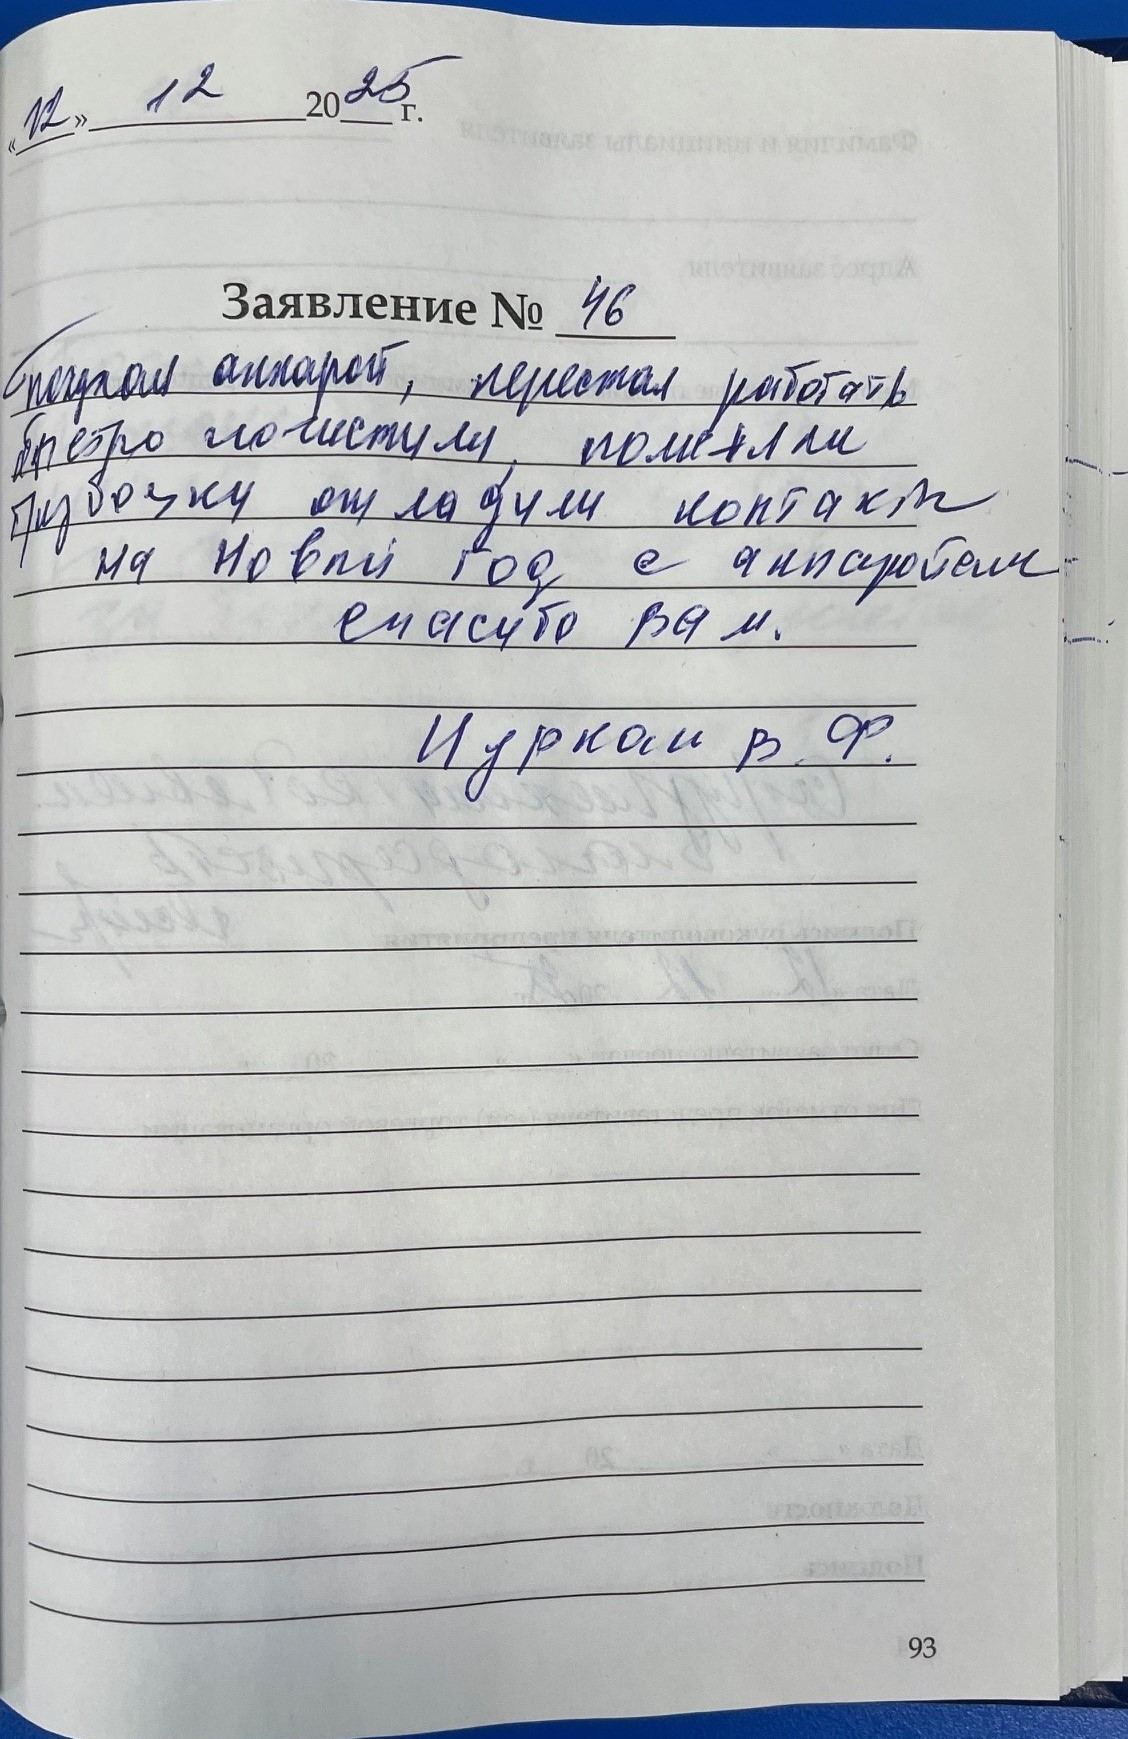 «12» 12 2025 г.
Заявление № 46
потухал аппарат, перестал работать
быстро почистили, поменяли
трубочку отладили контакты
на Новый год с аппаратом
спасибо вам.
В. Ф.
93